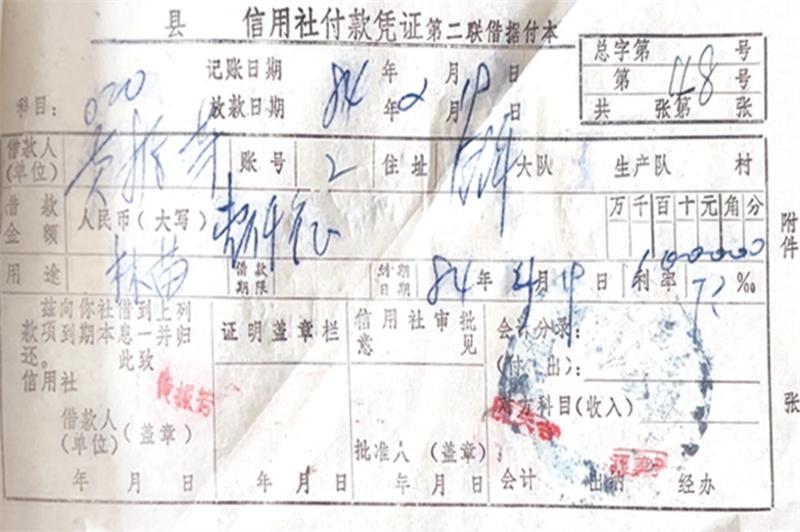 县 信用社付款凭证 第二联借据付本
总字第 号
第 48 号
共 张第 张
记账日期 年 月 日
科目: 放款日期 84 年 2 月 19 日
借款人(单位) 账号 2 住址 大队 生产队 村
借款金额 人民币(大写) 万千百十元角分
100000
用途 林苗 借款期限 到期日期 84 年 月 19 日 利率 72 ‰
兹向你社借到上列
款项到期本息一并归
还。 此致
信用社
证明盖章栏
信用社审批
意见
会计分录:
(付出):
对方科目(收入)
借款人
(单位) (盖章)
黄振芳
批准人 (盖章):
年 月 日 年 月 日 年 月 日 会计 出纳 经办
附件 张